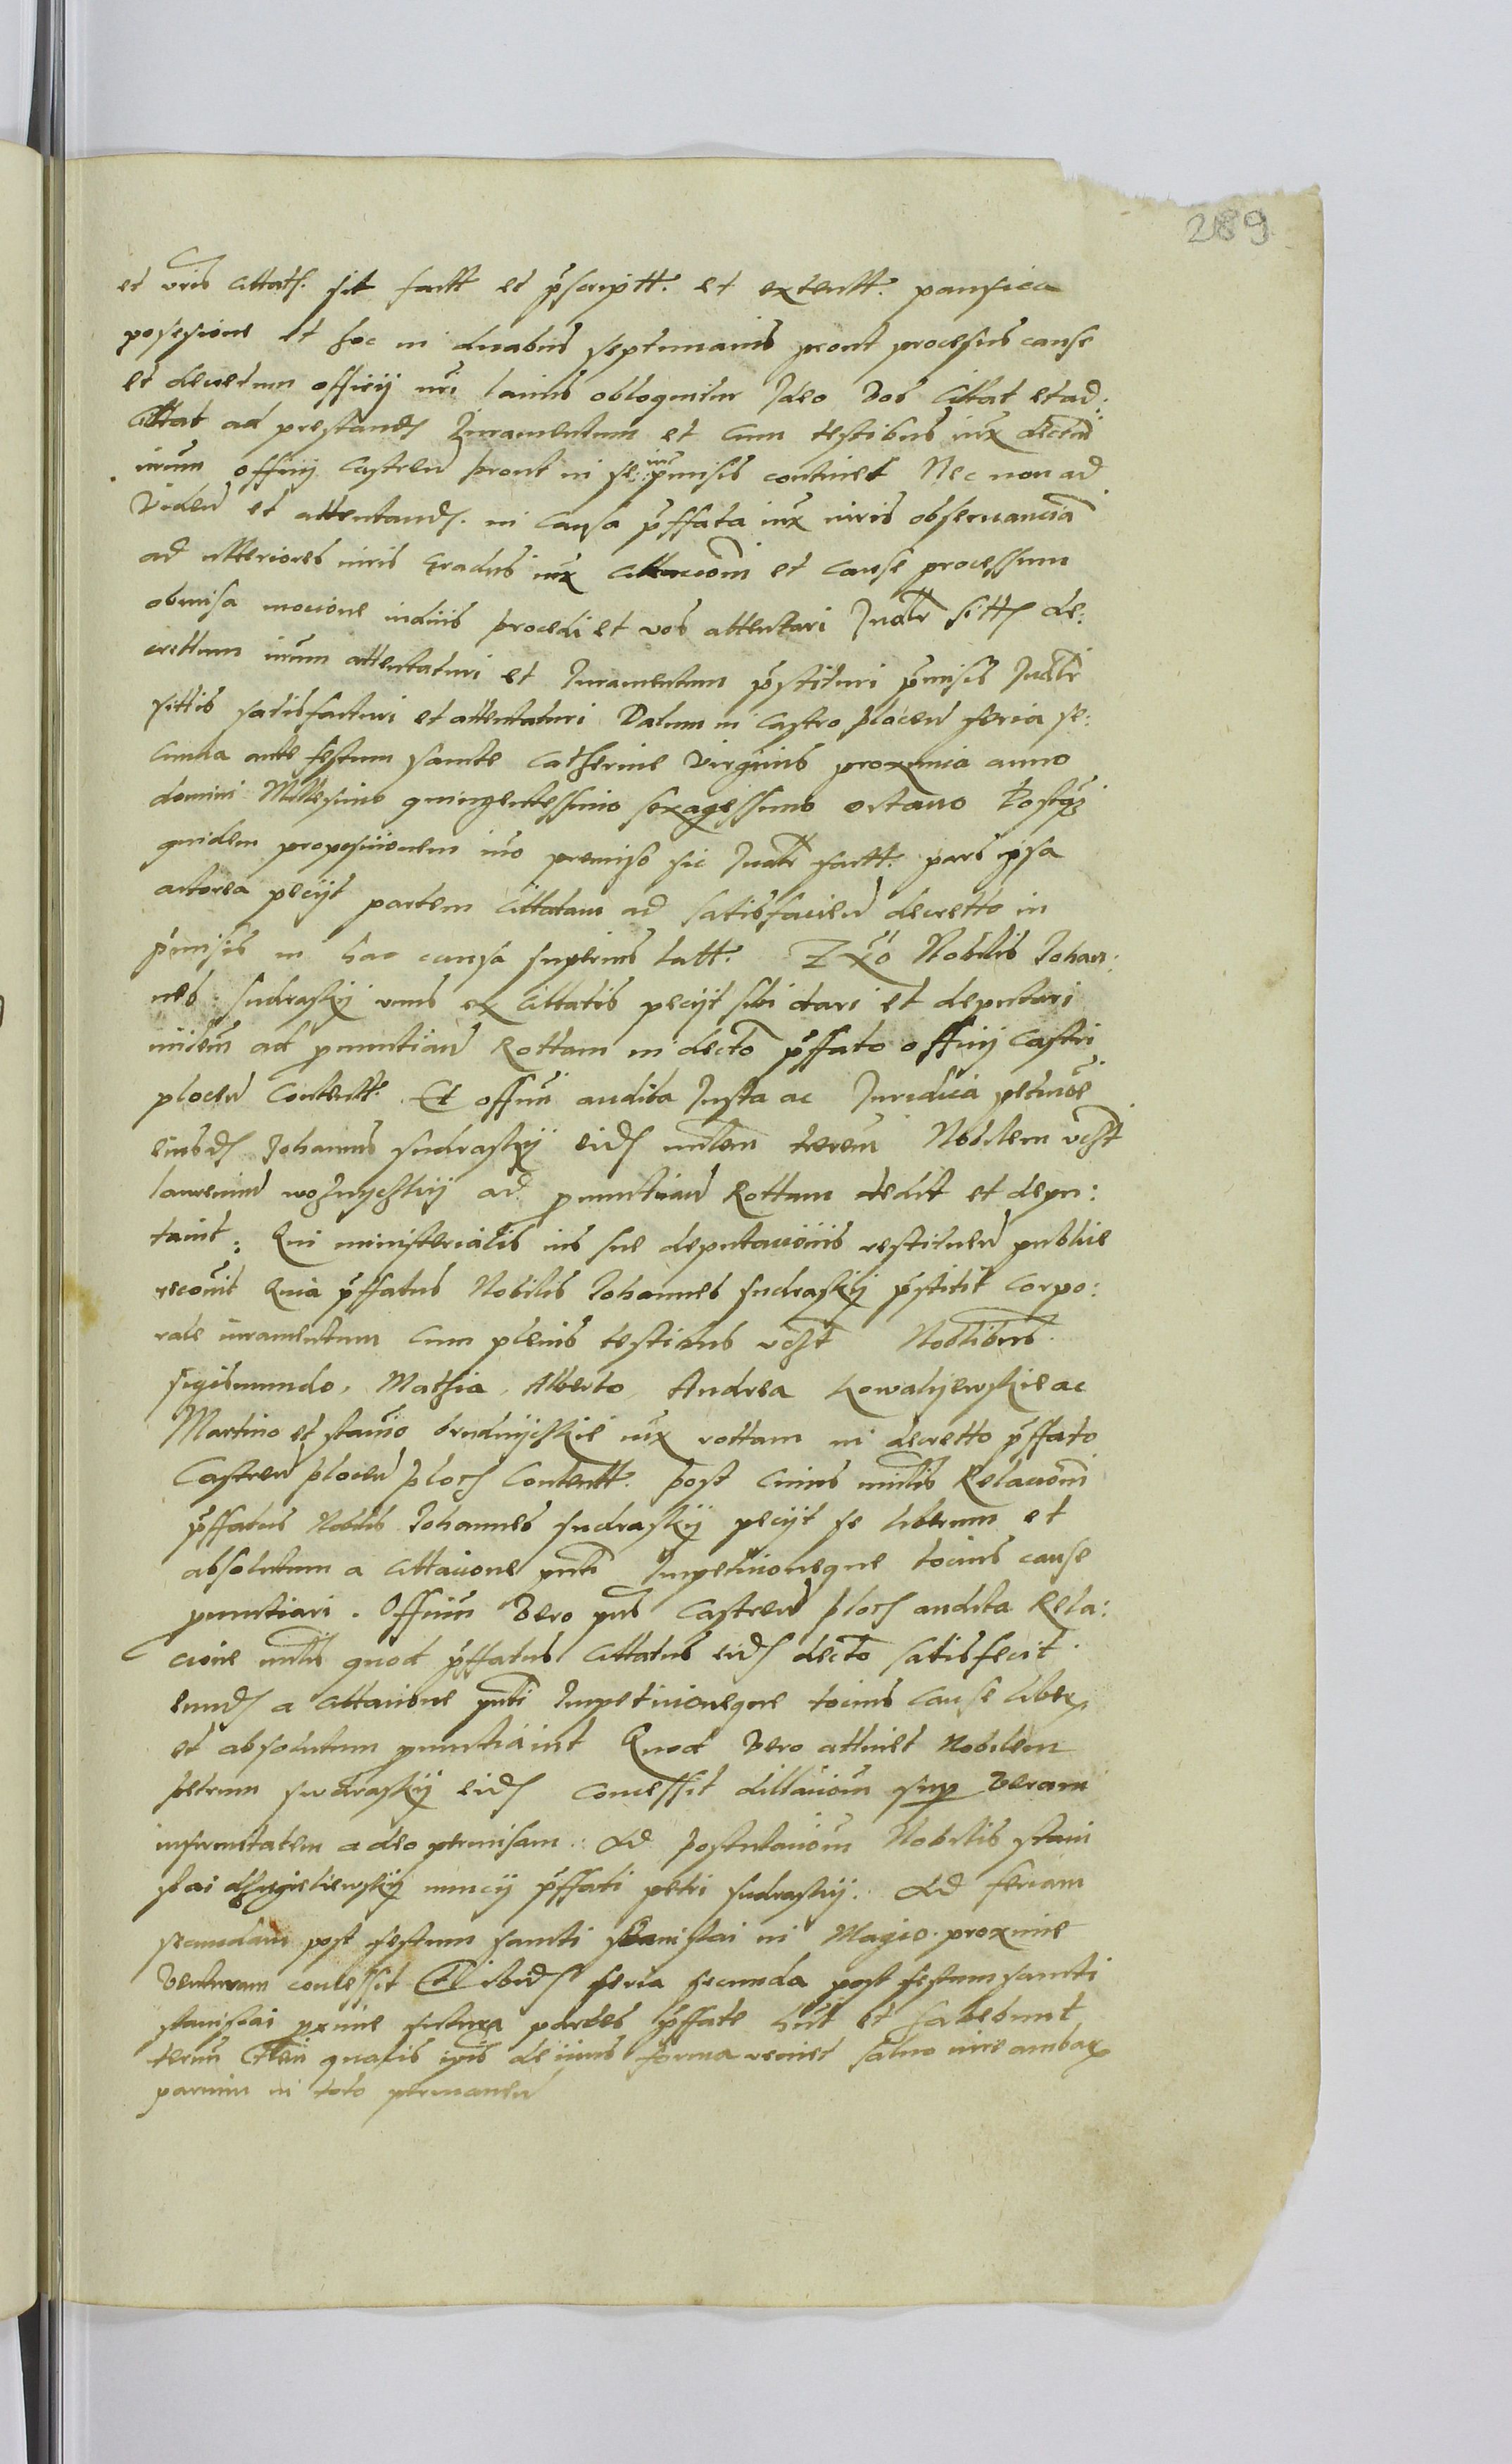 289
et vris cittatis. sit factt et pscriptt. et extentt. pansica
posesione et hoc in duabus septimanis prout procesus cause
et decretum officij nri lacius obloquitur Ideo vos cittat et ad:
cittat ad prestandum Juramentum et cum testibus iux dectm
nrum officij Castren prout in se in pmisis continet Nec non ad
Viden et attentand. in causa pffata iux iuris obseruanciā
ad ulteriores iuris Gradus iux cittacionē et cause processum
obmisa mocione indiiis procedi et vos attentari Judlr sittis de:
crettum nrum attentaturi et Juramentum pstituri pmisis Judlr
sittis satisfacturi et attentaturi Datum in Castro plocen feria se:
cunda ante festum sancte Catherine Virginis proximia anno
domini Millesimo quingentessimo sexagessimo octauo Postqz
quidem proposicionem mo premiso sic Judlr factt. pars ipsa
actorea peciit partem cittatam ad satisfacien decretto in
pmisis in hac causa superius latt. Nobilis Johan:
nes Sudraskij unus ex cittatis peciit sibi dari et deputari
milem ad pnuntian Rottam in decto pffato officij Castri
plocen contentt. Et offim audita Justa ac Juridica peticōē
eiusd Johannis sudraskij eid milem terem Nobilem vcht
laurencium woznychkij ad pnuntian Rottam dedit et depu:
tauit: Qui ministerialis ius sue deputacionis restituen publice
recoūit Quia pffatus Nobilis Johannes sudraskij pstitit corpo:
rale iuramentum cum plenis testibus vcht Nobilibus
sigismundo, Mathia, Alberto Andrea kowalyewskie ac
Martino et stanio brudnijchkie iux rottam in decretto pffato
Castren plocen plocz contentt. post cuius milis Relacionē
pffatus Nobilis Johannes sudraskij peciit se liberum et
absolutum a cittacione pnti Impeticioneque tocius cause
pnuntiari. Offiūm Vero pns Castren plocz audita Rela:
cione milis quod pffatus cittatus eid decto satisfecit
eund a cittacione pnti Impeticioneque tocius cause liber
et absolutum pnuntiauit Quod Vero attinet Nobilem
petrum sudraskij eid concessit dillacionē sup Veram
infirmitatem a deo permisam: Ad postulacionē Nobilis stani
slai nuncij pffati petri sudraskij. Ad feriam
secundam post festum sancti stanislai in Magio proxime
Venturam concessit Et ibid feria secunda post festum sancti
stanislai pxime futura partes pffate hnt et habebunt
termi talē qualis ipis de iuris forma veniet saluo iure ambax
parcium in toto permanen